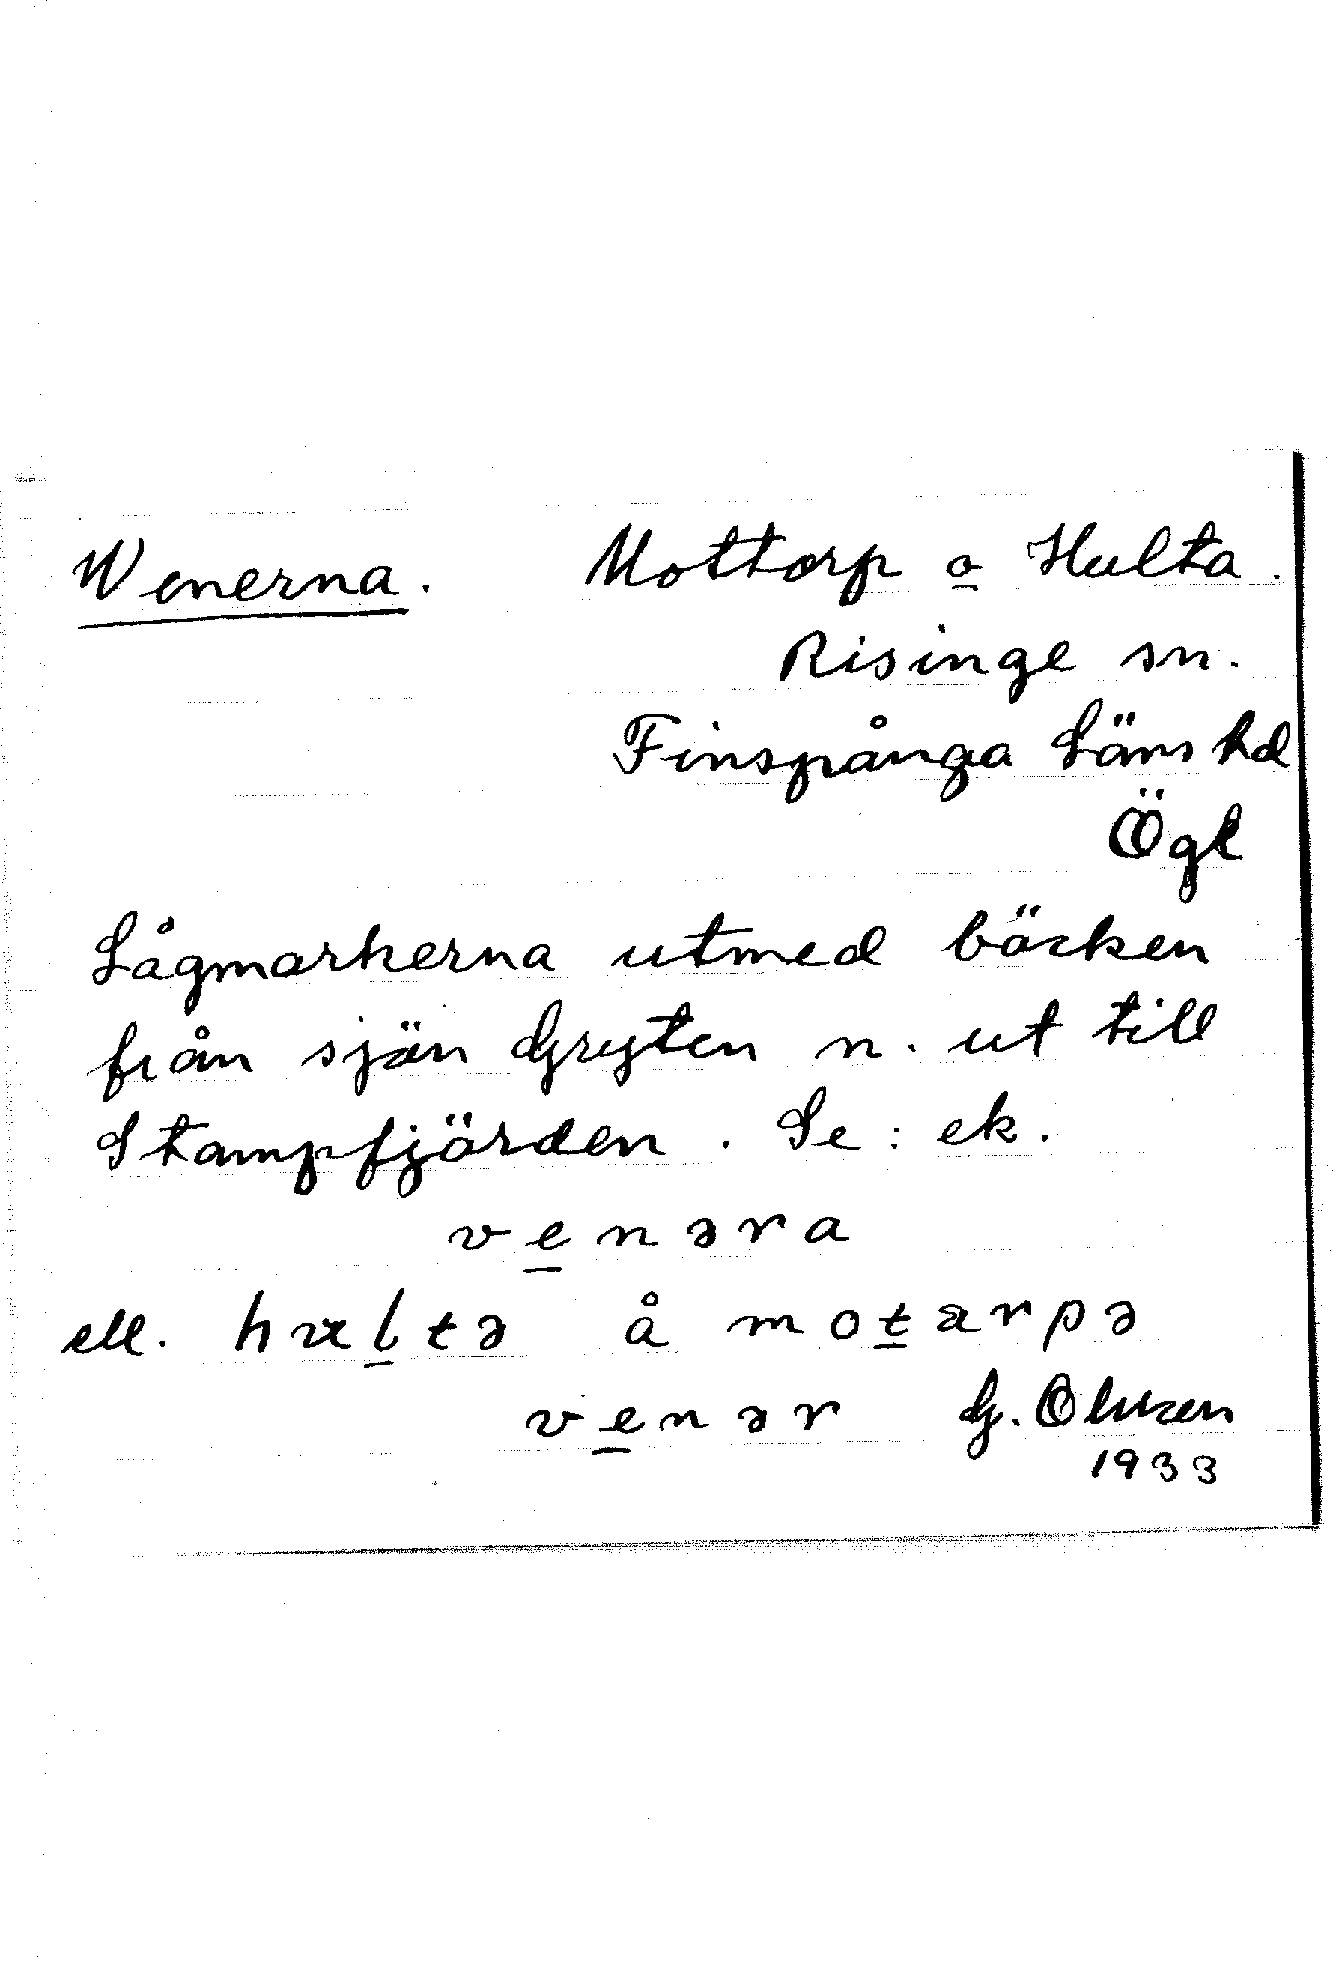 Wenerna. Mottorp o Hulta.
Risinge sn.
Finspånga Läns hd
Ögl
Lågmarkerna utmed bäcken
från sjön Gryten n. ut till
Stampfjärden. Se: ek.
venəra
ell. hultə å motarpə
venər G. Olsson
1933